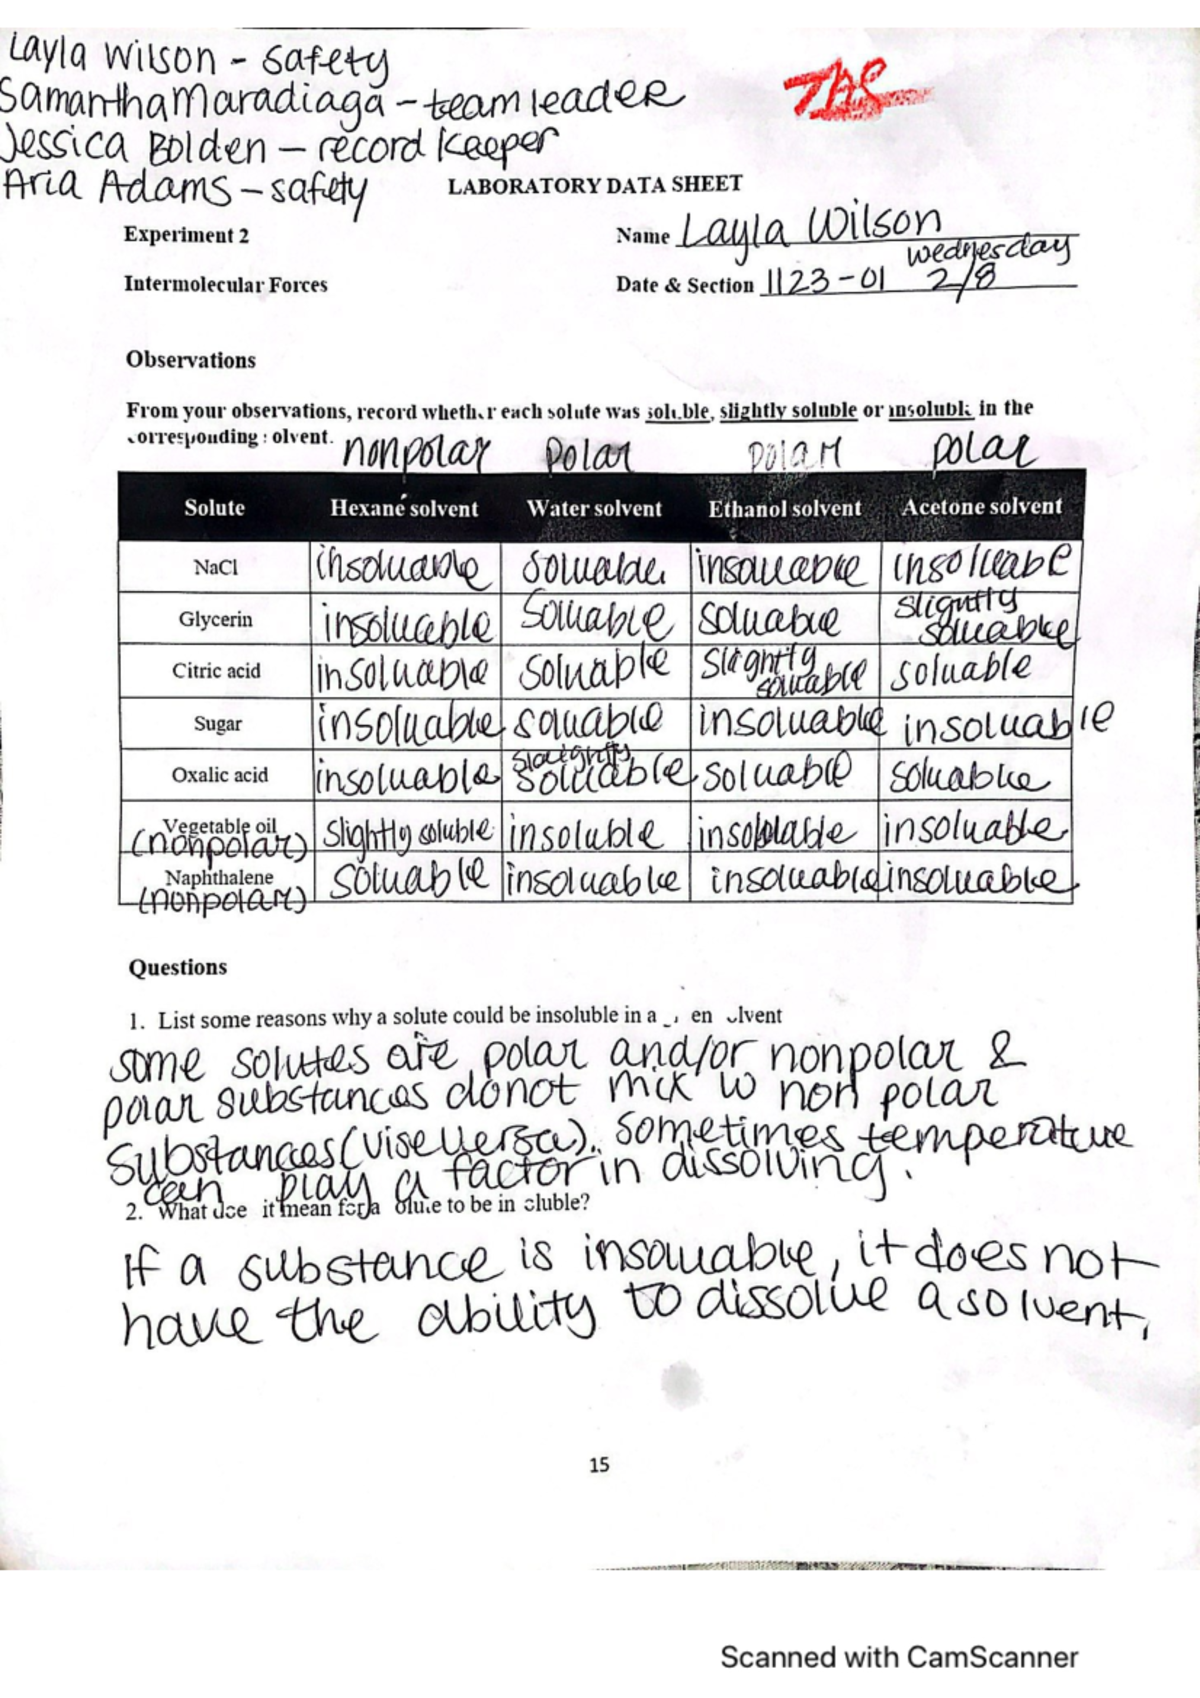 Layla Wilson - safety
Samantha Maradiaga - team leader
Jessica Bolden - record keeper
Aria Adams - safety
LABORATORY DATA SHEET
Experiment 2
Name Layla Wilson
Intermolecular Forces
Date & Section 1123-01 Wednesday 2/8
Observations
From your observations, record whether each solute was soluble, slightly soluble or insoluble in the
corresponding solvent.
nonpolar polar polar polar
Solute Hexane solvent Water solvent Ethanol solvent Acetone solvent
NaCl insoluable soluable insoluable insolueable
Glycerin insoluable soluable soluable slightly soluable
Citric acid insoluable soluable slightly soluable soluable
Sugar insoluable soluable insoluable insoluable
Oxalic acid insoluable slightly soluable soluable soluable
Vegetable oil (nonpolar) slightly soluble insoluble insoluable
Naphthalene (nonpolar) soluable insoluable insoluable insoluable
Questions
1. List some reasons why a solute could be insoluble in a en solvent
some solutes are polar and/or nonpolar &
polar substances do not mix w non polar
substances (vise versa). sometimes temperature
can play a factor in dissolving.
2. What does it mean for a solute to be insoluble?
If a substance is insoluable, it does not
have the ability to dissolve a solvent.
15
Scanned with CamScanner